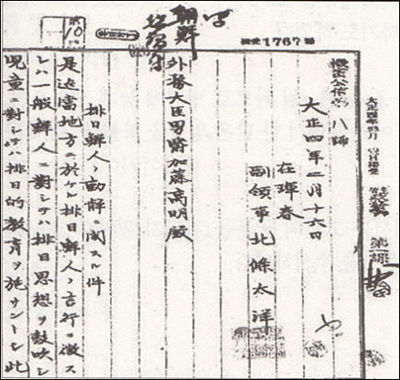 朝鮮
機受1767號
10
第一課
機密公信第八號
大正四年二月十六日
在琿春
副領事北條太洋
外務大臣男爵加藤高明殿
排日鮮人ノ動静ニ関スル件
是迄當地方ニ於ケル排日鮮人ノ言行ニ徴ス
レハ一般鮮人ニ對シテハ排日思想ヲ鼓吹シ
児童ニ對シテハ排日的教育ヲ施サントシ此